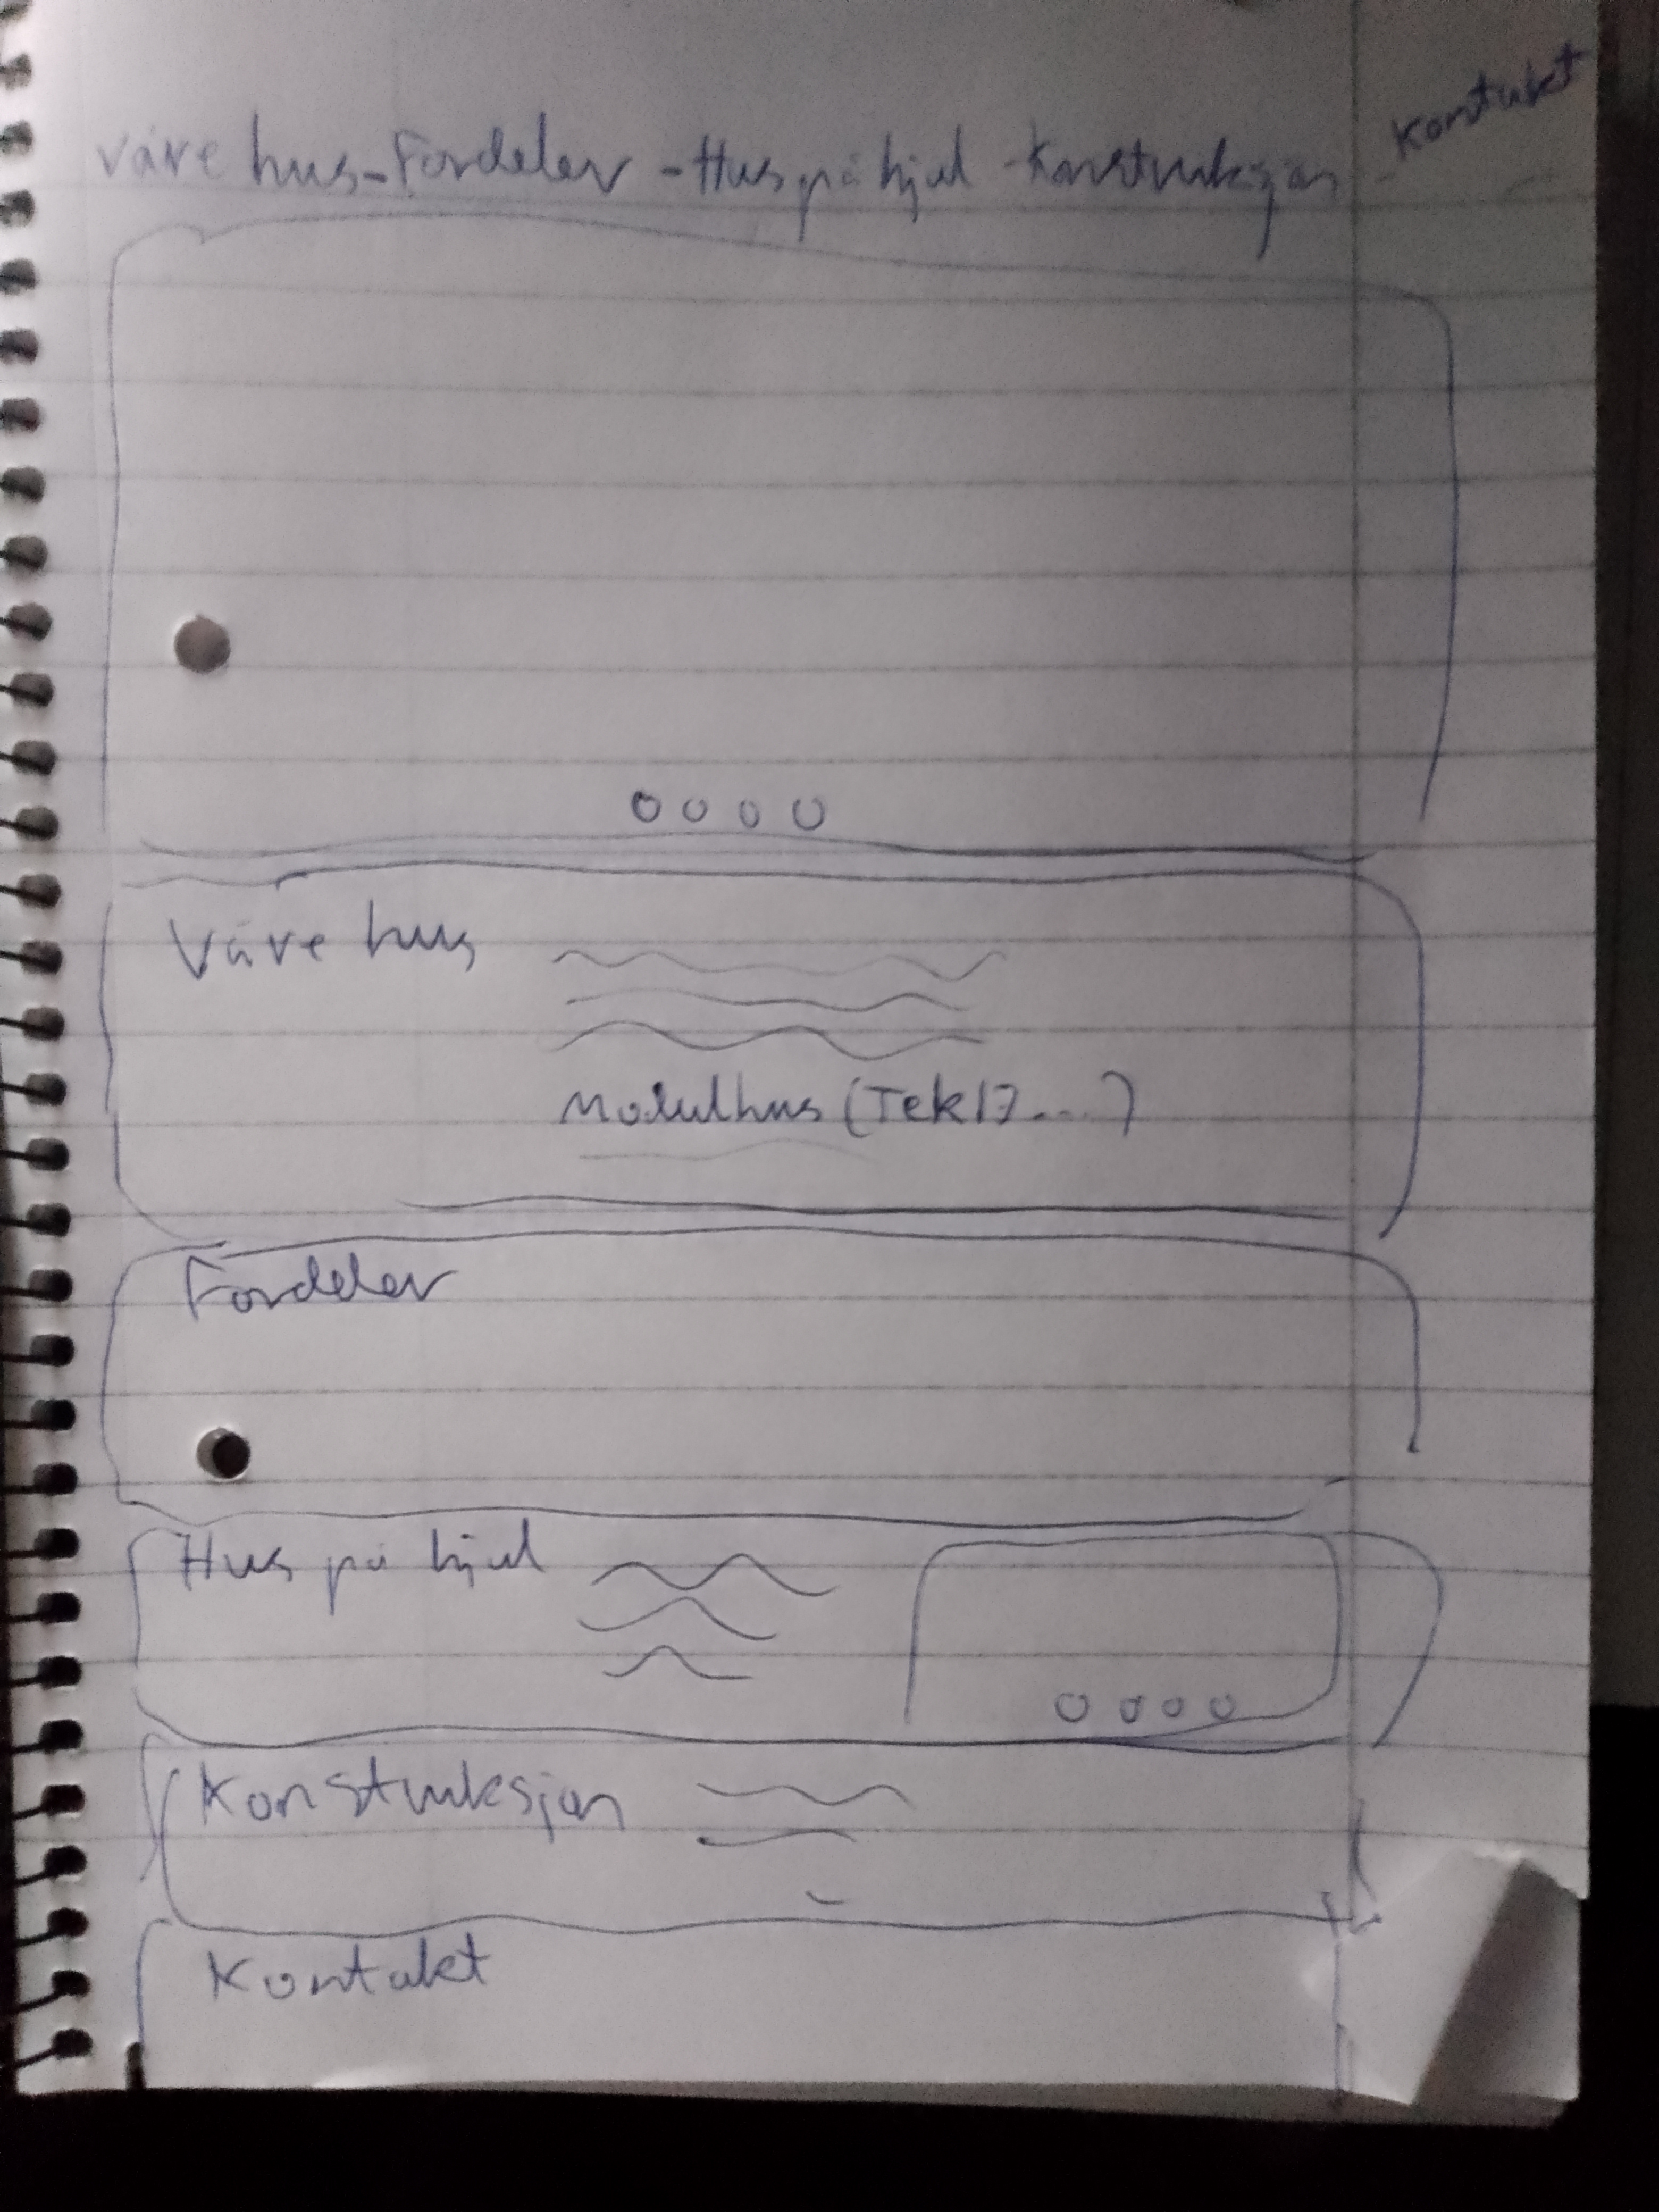 Våre hus - Fordeler - Hus på hjul - Konstruksjon - Kontakt
Våre hus
Modulhus (Tek17....)
Fordeler
Hus på hjul
Konstruksjon
Kontakt